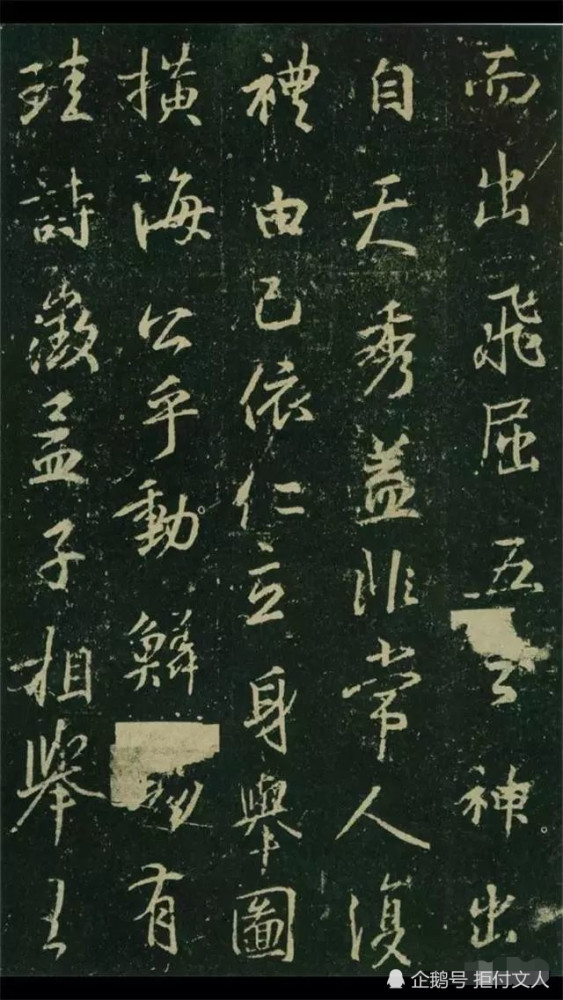 而出飛屈五云神出
自天秀蓋非常人復
禮由己依仁立身舉圖
橫海公乎動鮮有
珪詩徵孟子相舉
企鹅号 拒付文人